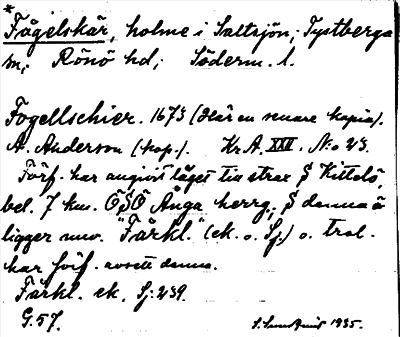 *
Fågelskär, holme i Saltsjön, Tystberga
sn; Rönö hd; Söderm. l.
Fogellschier. 1673 (här en senare kopia).
A. Anderson (kop.). Kr A. XXV. No 23.
Förf. har angivit läget till strax S Kittelö,
bel. 7 km. ÖSÖ Ånga herrg; S denna ö
ligger nuv. "Fårkl." (ek. o. Sj.) o. trol.
har förf. avsett denna.
Fårkl. ek. Sj: 239.
G. 57.
1935.